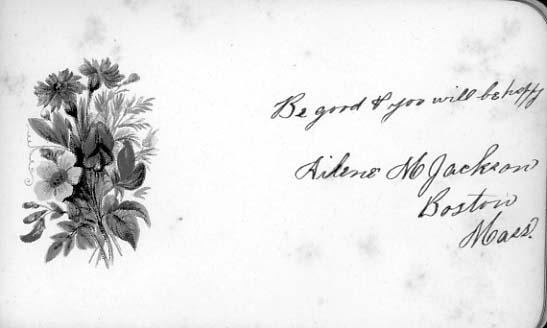 Be good & you will be happy
Ailene M Jackson
Boston
Mass.